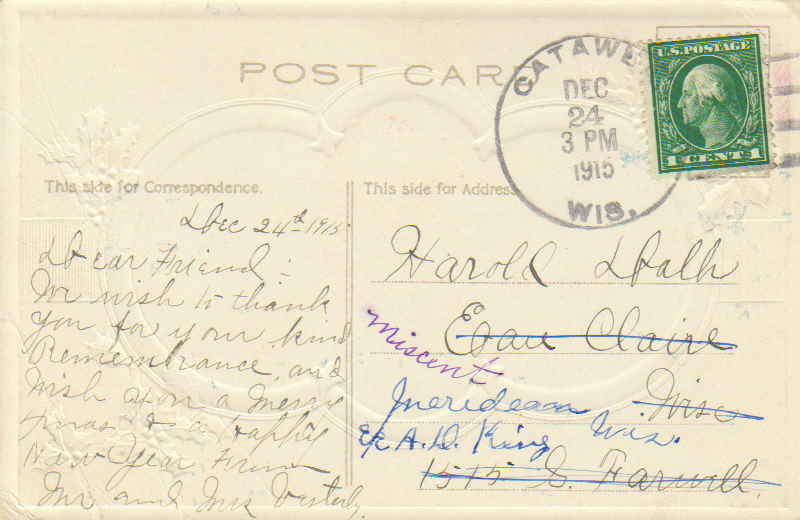 POST CARD
CATAW
DEC
24
3 PM
1915
WIS.
U.S. POSTAGE
1 CENT 1
This side for Correspondence.
Dec 24th 1915
Dear Friend -
We wish to thank
you for your kind
Remembrance and
Wish you a Merry
Xmas & a Happy
New Year From
Mr and Mrs
This side for Address.
Harold
Eau Claire
Miscent
Merideaan Wisc
c/o A.D. King Wis.
1515 S. Farwell.